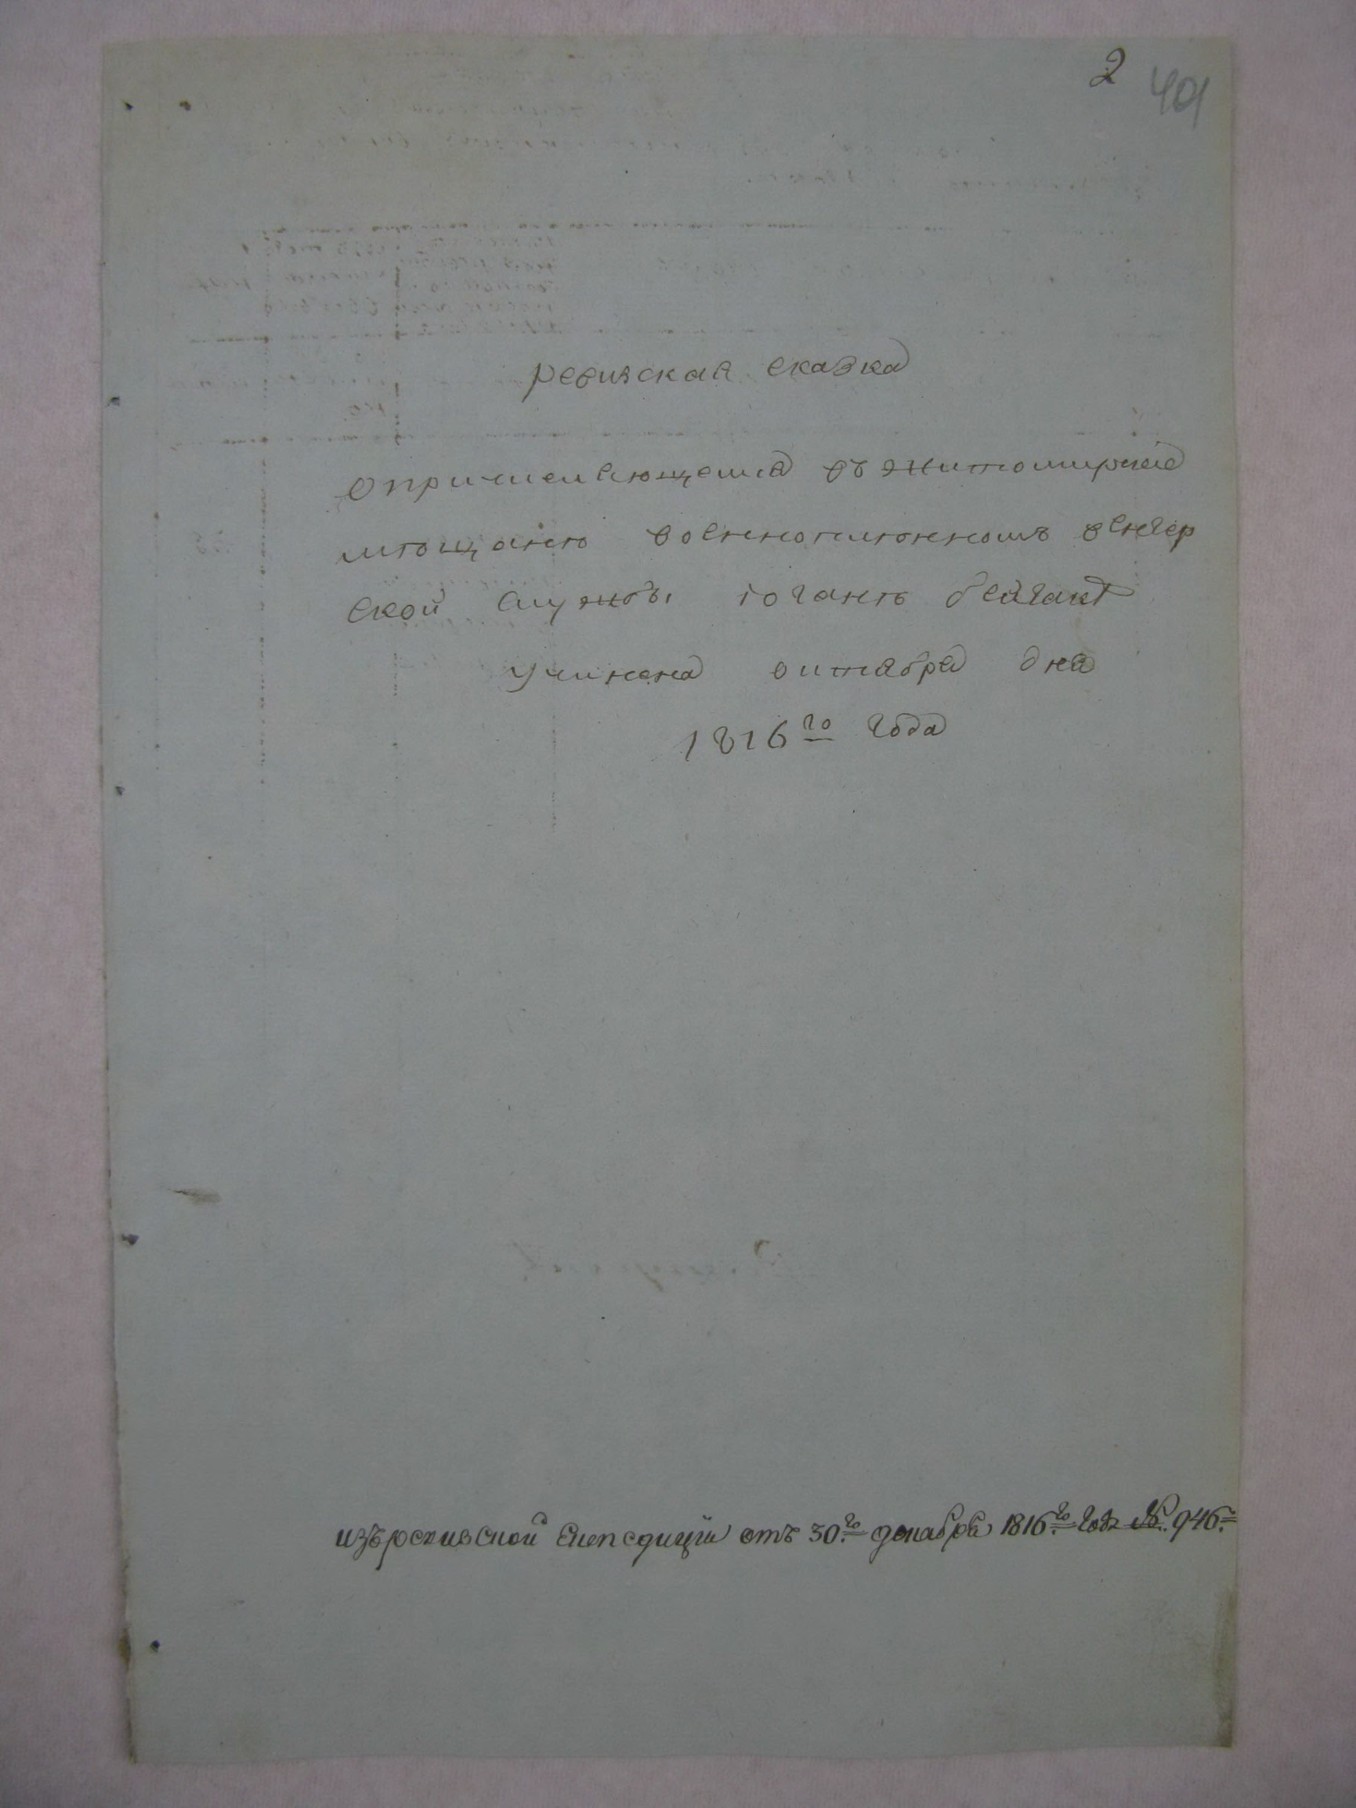 2 401
ревизская сказка
опричисляющемся въ житомирские
мющаню военнопленномъ венгер
ской службы іоганъ бейгант
учинена октября дня
1816го года
изъ ревизской експедиціи отъ 30го декабря 1816го года № 946